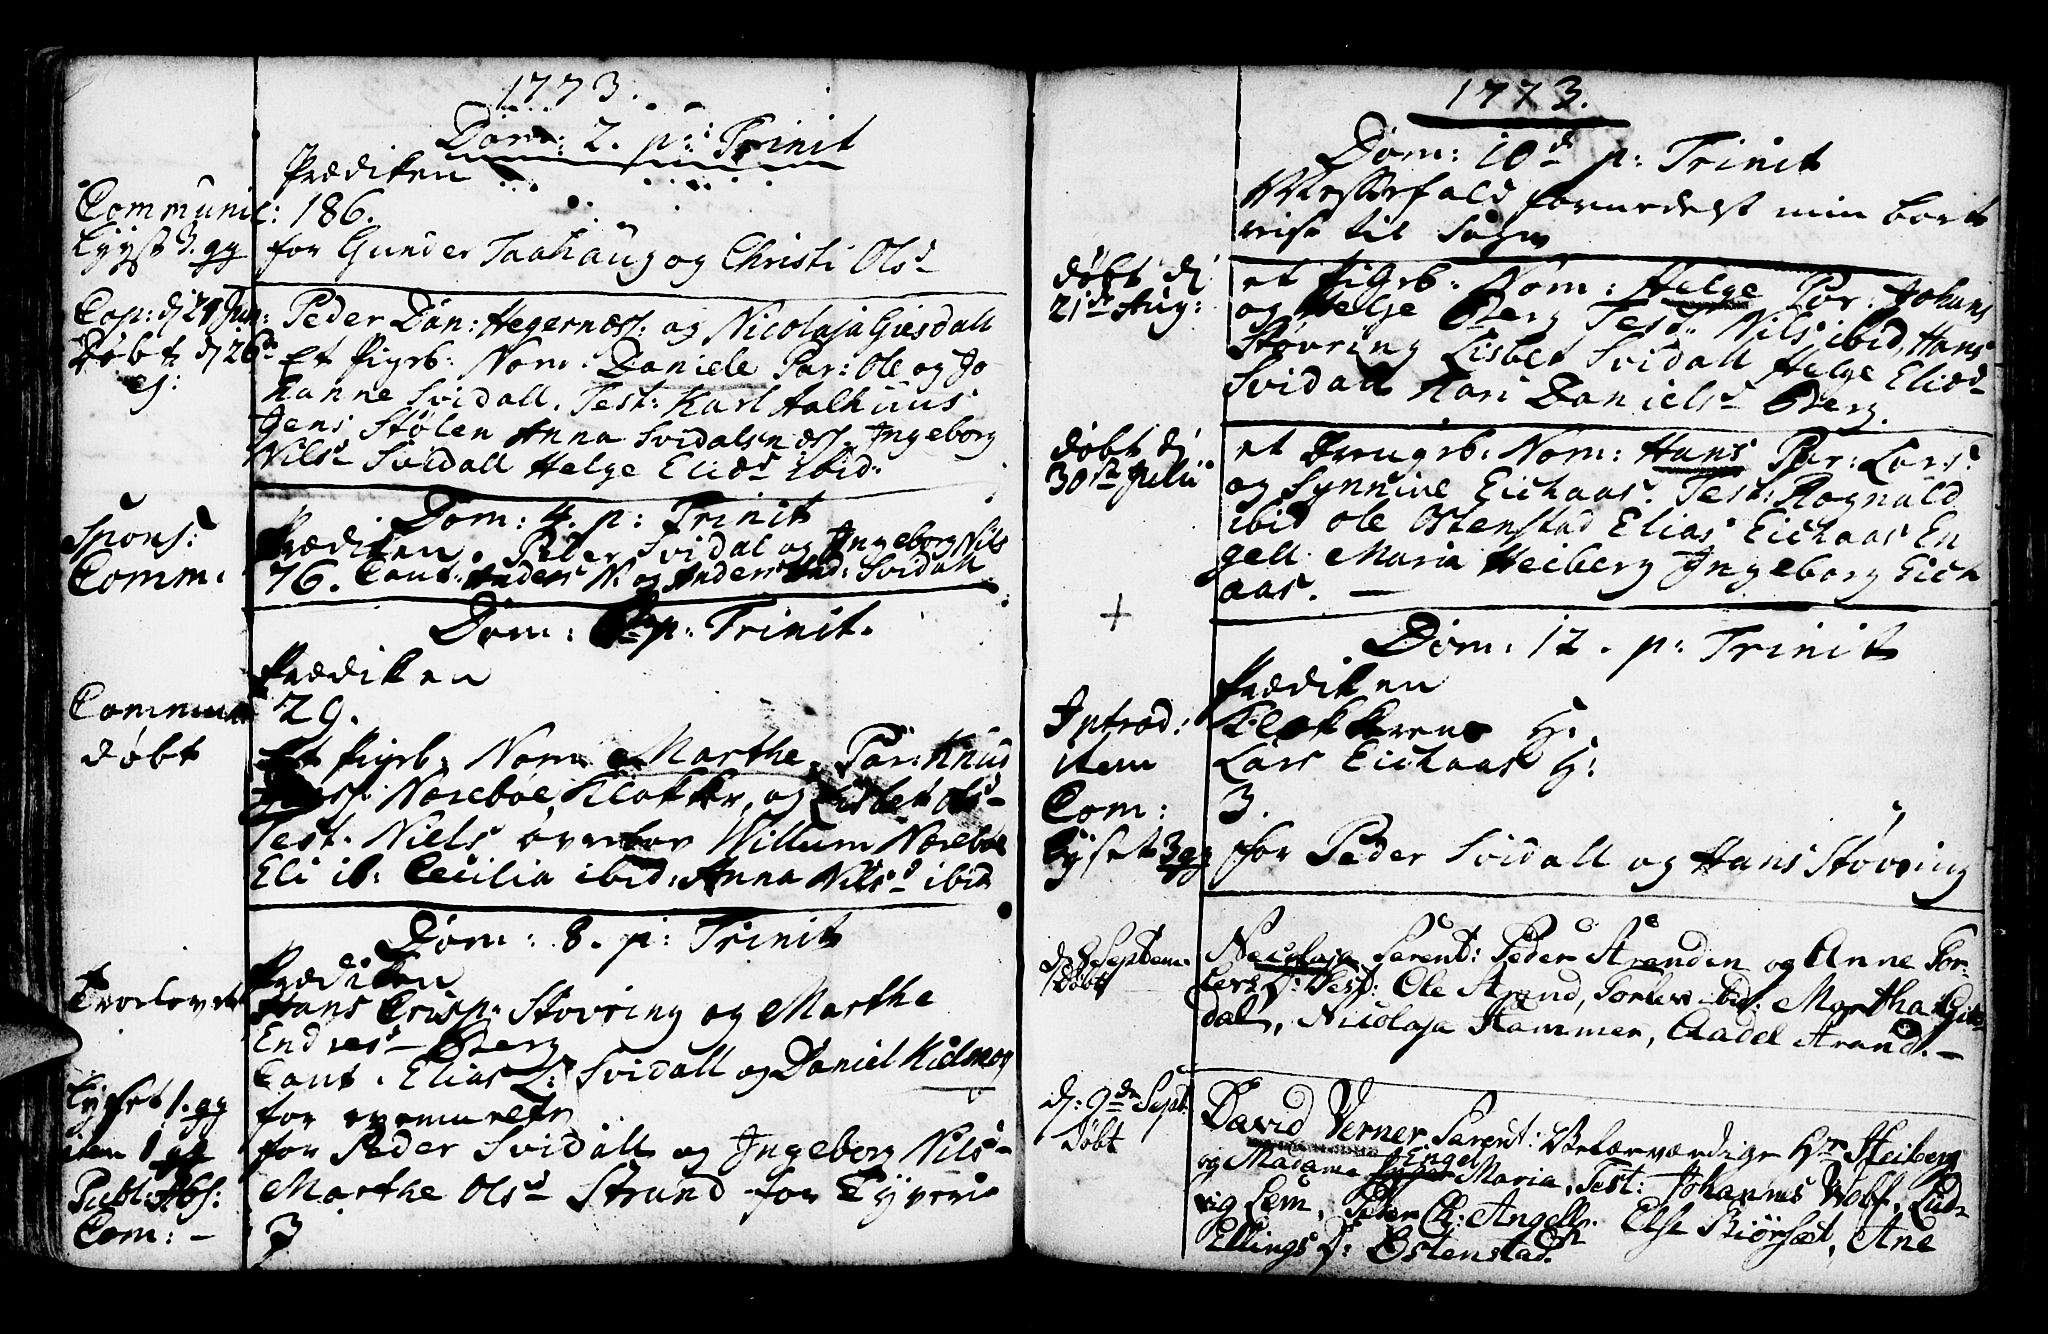 1773.
Dom: 2. p: Trinit
Prædiken
Communic: 186.
Lyyst 3. gg for Gunder Taahaug og Christi Olsd
Cop: d 24 Jun: Peder Dan: Hegernæss. og Nicolaja Giesdall
Døbt d 26d Et Pigeb: Nom. Daniele Par: Ole og Jo
ej: hanne Svidall. Test: Karl Aalhuus
Jens Stølen Anna Svidalsnæss. Ingeborg
Nilsd Svidall Helge Eliæd ibid.
Dom: 4. p: Trinit
Spons: Prædiken. Peder Svidal og Ingeborg Nils
Comm: 76. Caut: Anders N. og Anders And: Svidall
Dom: p: Trinit.
Prædiken
Commun 29.
døbt Et Pigeb: Nom. Marthe. Par: Knud
Nørebøe Klokker, og Lisbet Olsd
Test. Niels øvrebøe Willum Nørebøe
Eli ib: Cecilia ibid: Anna Nilsd ibid
Dom: 8. p: Trinit
Prædiken
Trolovet Hans Crisp: Støvring og Marthe
Endresd Berg
Caut. Elias L: Svidall og Daniel Kielsnæs
Lyset 1. gg for
item 1 gg for Peder Svidall og Ingeborg Nilsd
Publ: Abs: Marthe Olsd Strand for Tyverie
Com: - 3
1773.
Dom: 10d p: Trinit
Messefald formedelst min bort
reise til Sogn
døbt d et Pigeb. Nom: Helge Par: Johans
21d Aug: og Helge Berg Test: Nils ibid, Hans
Støvring Lisbet Svidall Helge Eliæd
Svidall Kari Danielsd Berg.
døbt d et Drengeb: Nom: Hans Par: Lars
30st Julii og Synnive Eichaas. Test: Rognald
ibid Ole Ostenstad Elias Eichaas En
gell. Maria Heiberg Ingeborg Eich
aas. —
+
Dom: 12. p: Trinit
Prædiken
Introd: Klokkerens H:
item Lars Eichaas H:
Com: 3.
Lyset 3 gg for Peder Svidall og Hans Støvring
d. 8 Septem. Nicolaja Parent: Peder Aranden og Anne Tor:
Døbt lers D: Test: Ole Arand, Torler ibid: Martha Gies
dal, Nicolaja Hammer, Aadel Arand. —
d: 9de Sept. David Verner. Parent: Velærværdige Hr Heiberg
Døbt og Madame Engel Maria, Test: Johannes Wolf, Lud
vig Lem, Peter Ch: Angell. Else Biørset, Ane
Ellings D: Østenstad.